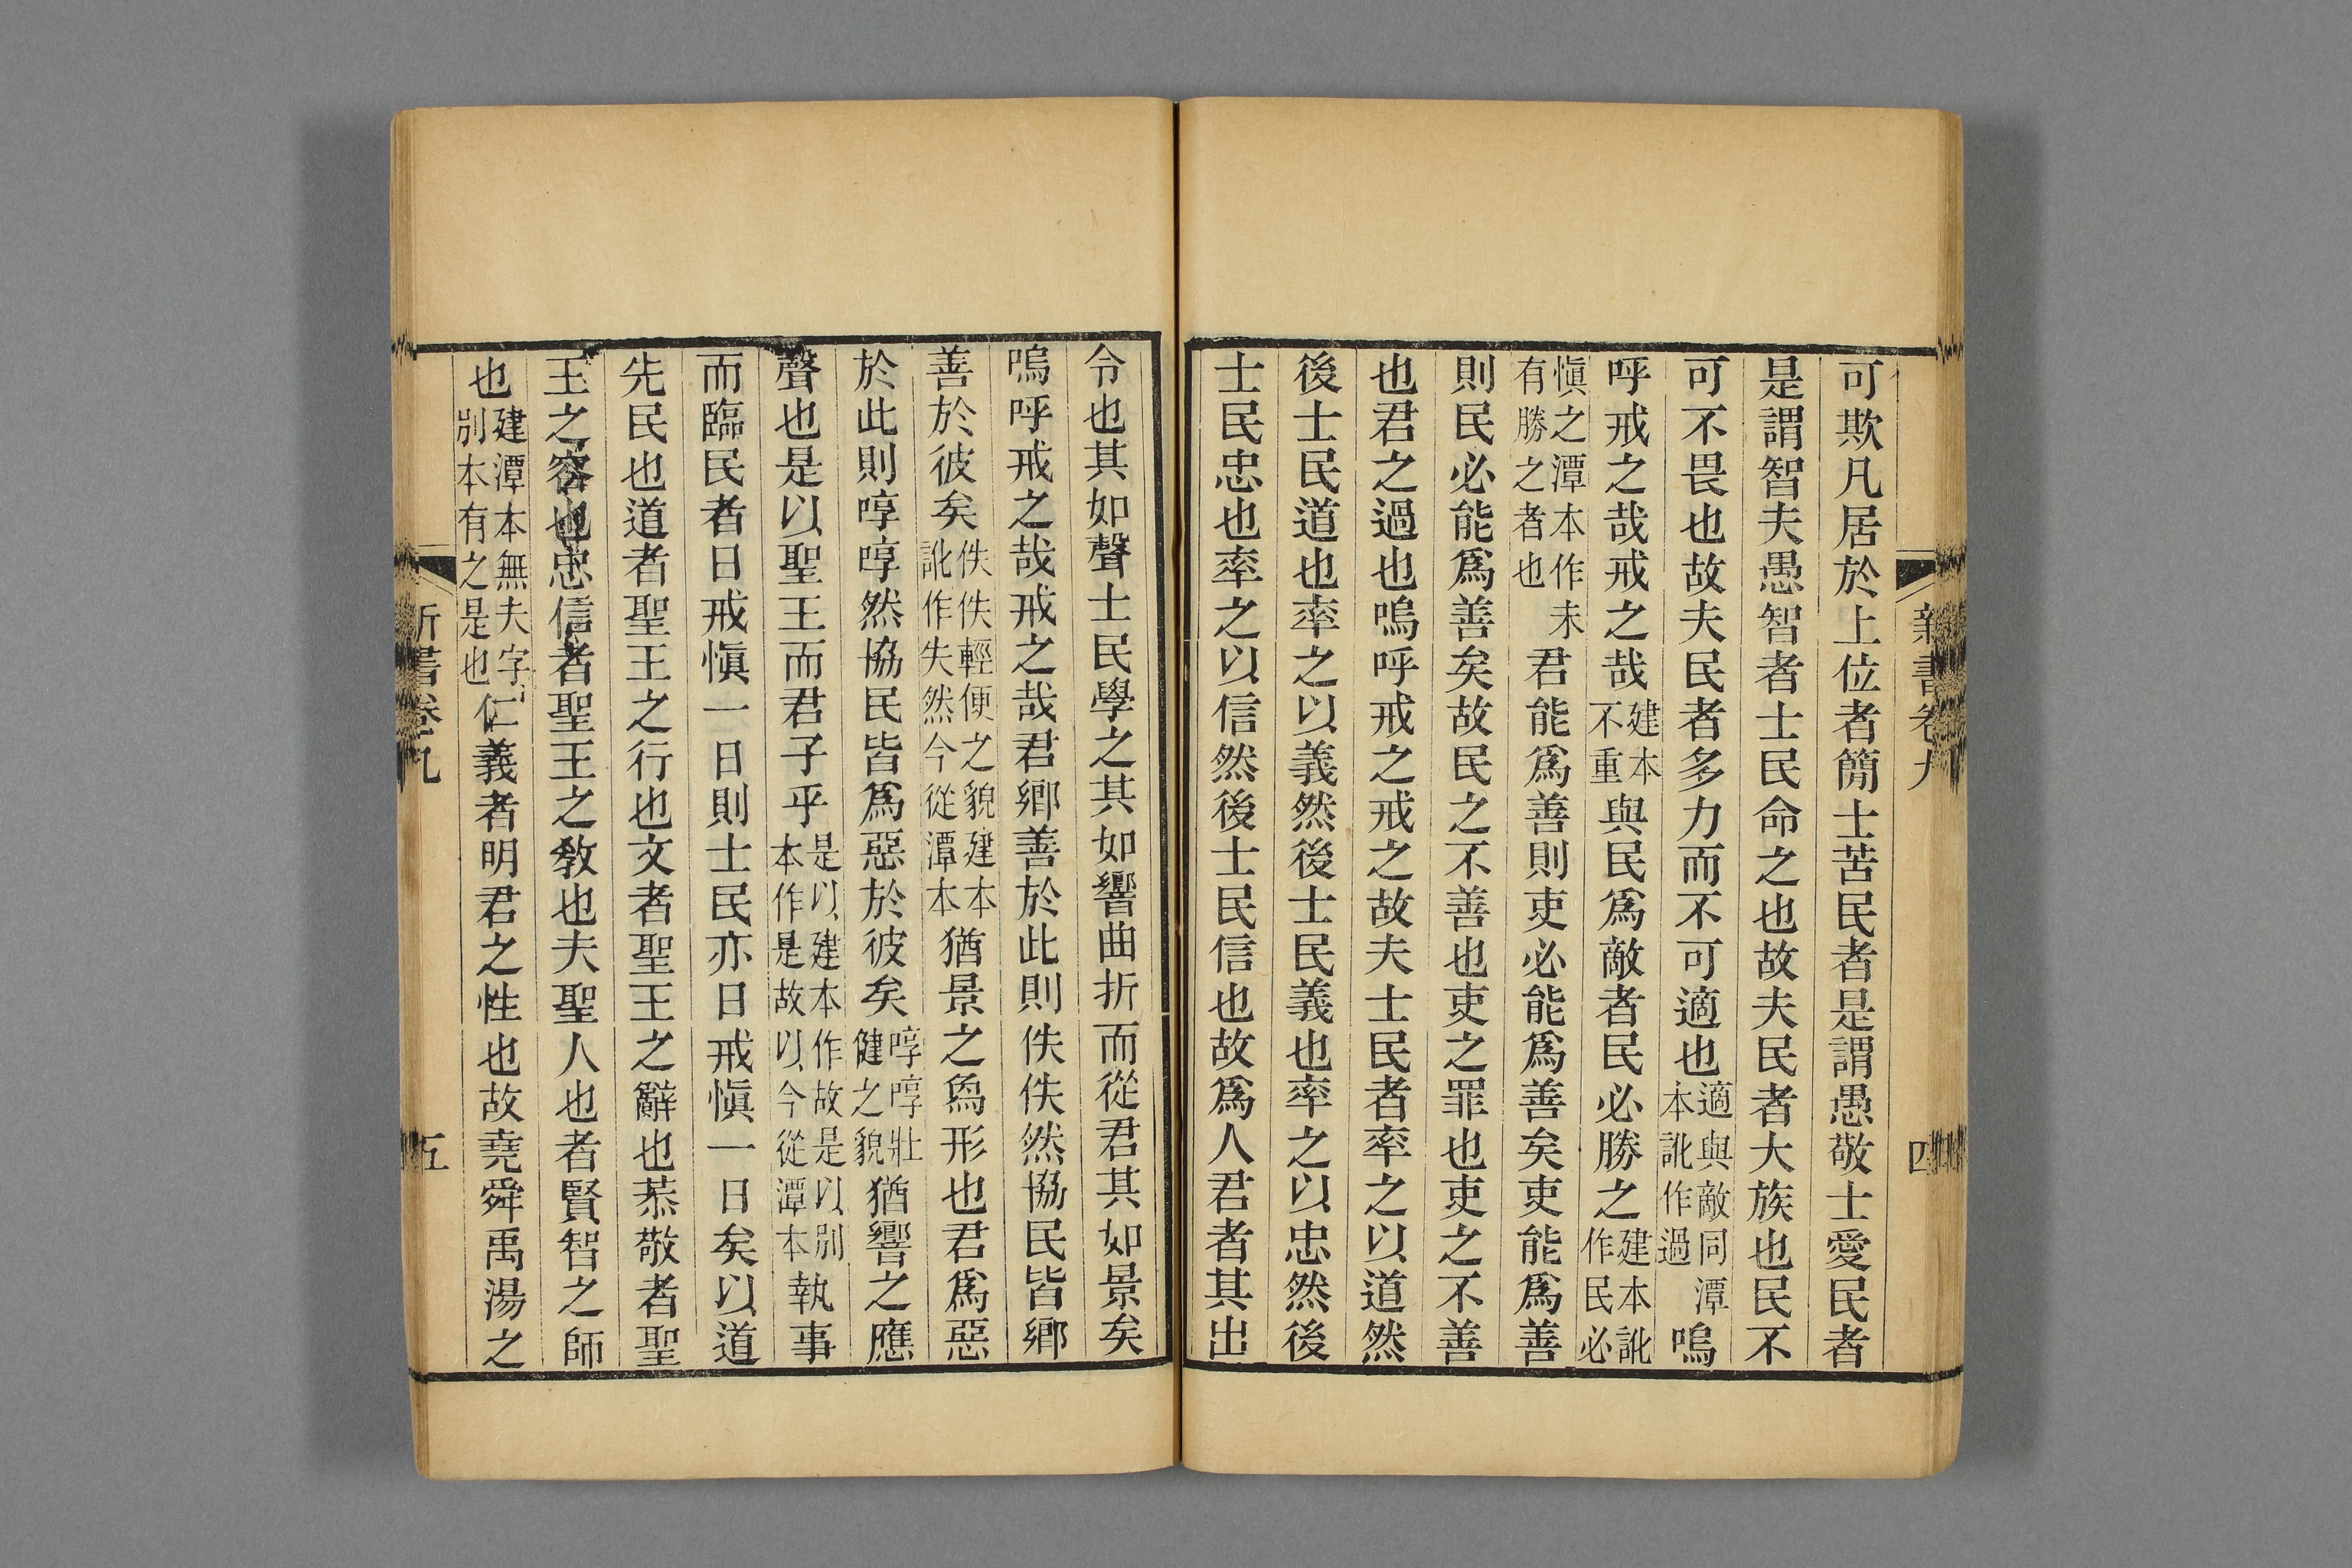 可欺凡居於上位者簡士苦民者是謂愚敬士愛民者
是謂智夫愚智者士民命之也故夫民者大族也民不
可不畏也故夫民者多力而不可適也適與敵同潭本訛作過嗚
呼戒之哉戒之哉建本不重與民爲敵者民必勝之建本訛作民必
愼之潭本作未有勝之者也君能爲善則吏必能爲善矣吏能爲善
則民必能爲善矣故民之不善也吏之罪也吏之不善
也君之過也嗚呼戒之戒之故夫士民者率之以道然
後士民道也率之以義然後士民義也率之以忠然後
士民忠也率之以信然後士民信也故爲人君者其出
新書卷九
四
令也其如聲士民學之其如響曲折而從君其如景矣
嗚呼戒之哉戒之哉君鄉善於此則佚佚然協民皆鄉
善於彼矣佚佚輕便之貌建本訛作失然今從潭本猶景之爲形也君爲惡
於此則啍啍然協民皆爲惡於彼矣啍啍壯健之貌猶響之應
聲也是以聖王而君子乎是以建本作故是以別本作是故以今從潭本執事
而臨民者日戒愼一日則士民亦日戒愼一日矣以道
先民也道者聖王之行也文者聖王之辭也恭敬者聖
王之容也忠信者聖王之教也夫聖人也者賢智之師
也建潭本無夫字別本有之是也仁義者明君之性也故堯舜禹湯之
新書卷九
五